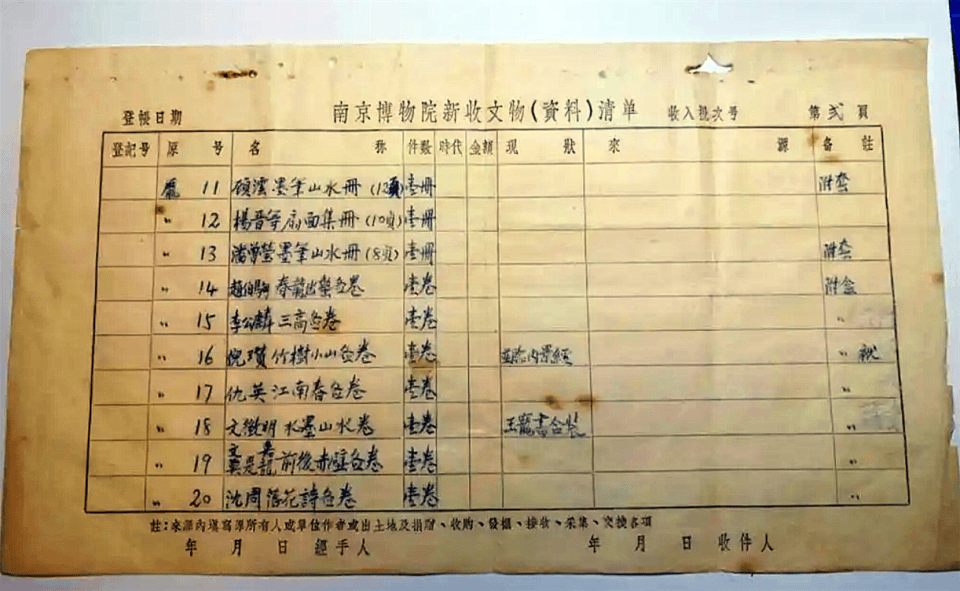 南京博物院新收文物(資料)清单
登帳日期 收入批次号 第弍頁
登記号 原号 名称 件数 時代 金額 現狀 來源 备註
龐 11 顾澐墨笔山水册(12頁) 壹册 附套
〃 12 楊晋等扇面集册(10頁) 壹册
〃 13 潘曾瑩墨笔山水册(8頁) 壹册 附套
〃 14 趙伯駒春龍出蟄㊎卷 壹卷 附盒
〃 15 李公麟三高㊎卷 壹卷 〃
〃 16 倪瓚竹樹小山㊎卷 壹卷 内景經 〃
〃 17 仇英江南春㊎卷 壹卷 〃
〃 18 文徵明水墨山水卷 壹卷 王寵書合裝 〃
〃 19 文嘉 莫是龍 前後赤壁㊎卷 壹卷 〃
〃 20 沈周落花詩㊎卷 壹卷 〃
註:來源内填寫原所有人或单位作者或出土地及捐贈、收购、發掘、接收、采集、交換各項
年 月 日 經手人 年 月 日 收件人